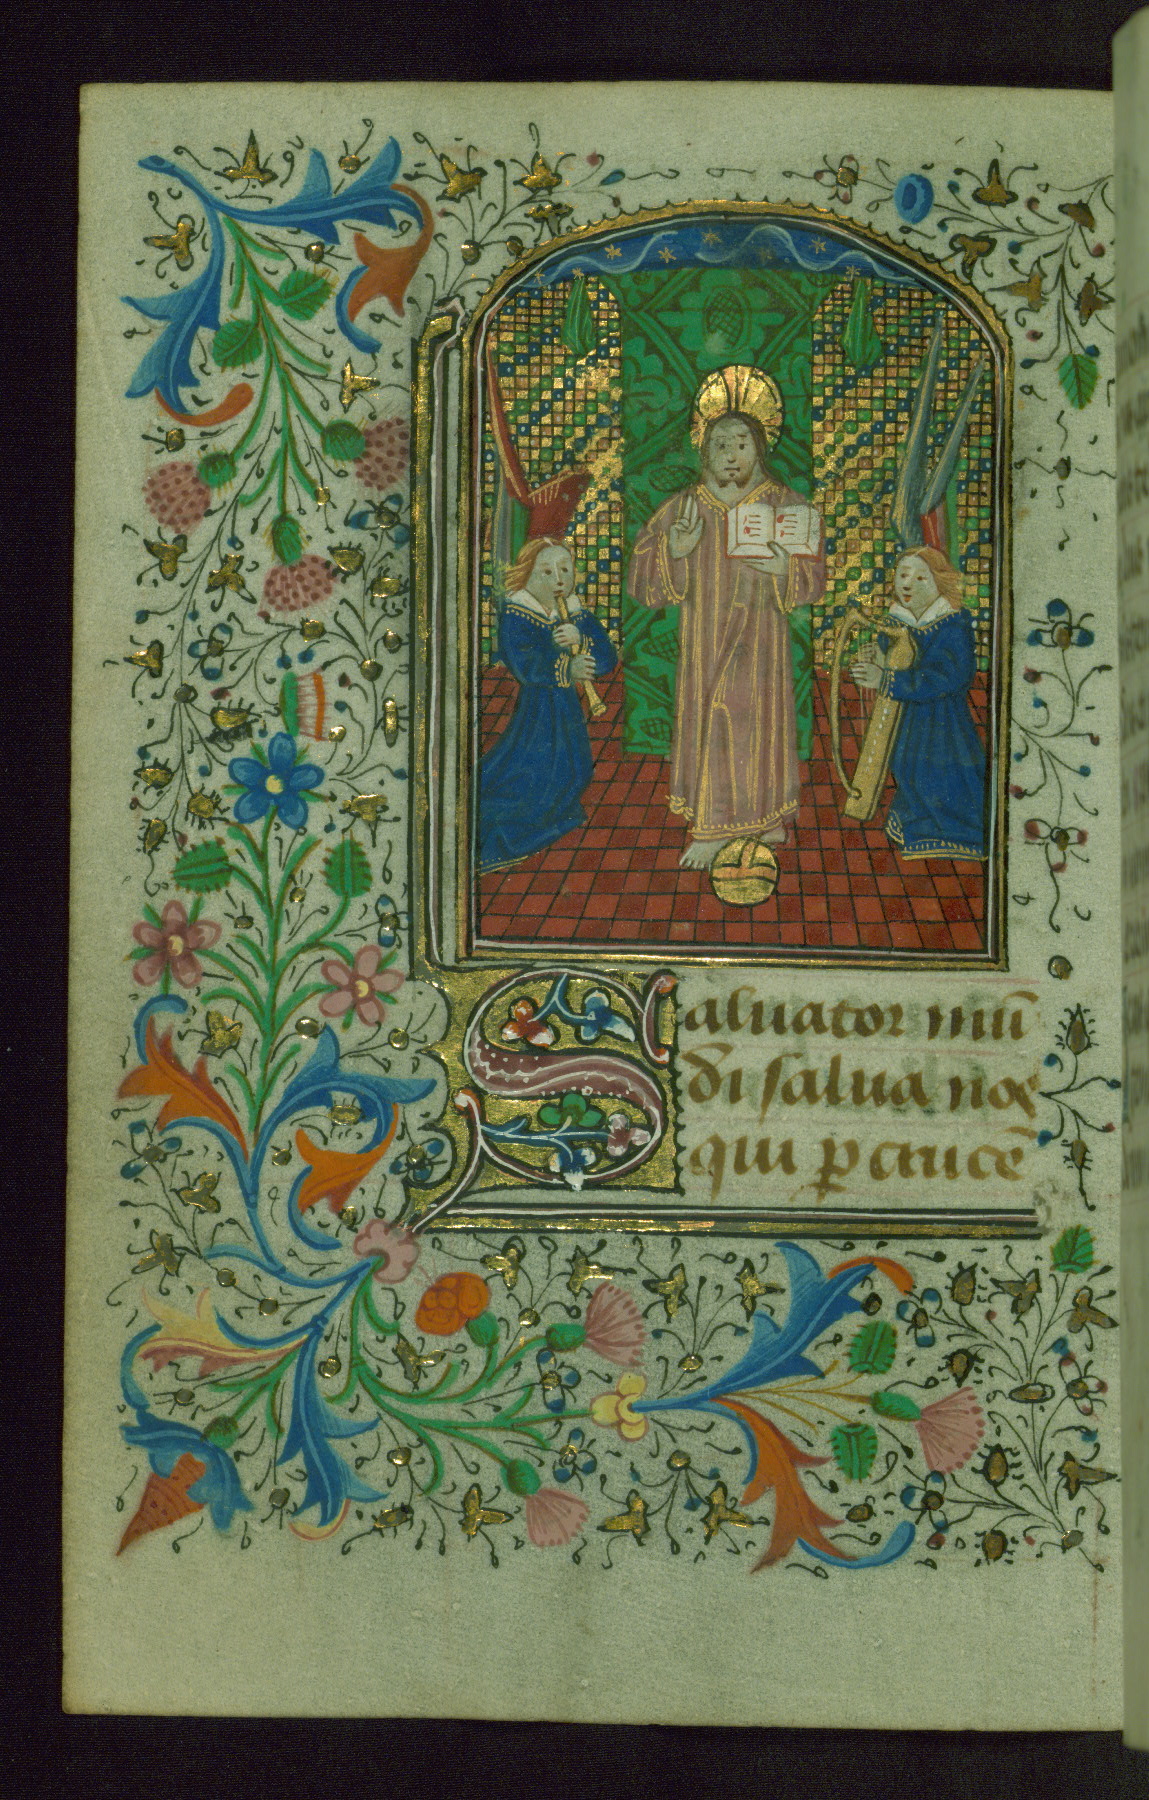 Saluator mũ
di salua nos
qui p̱ crucẽ